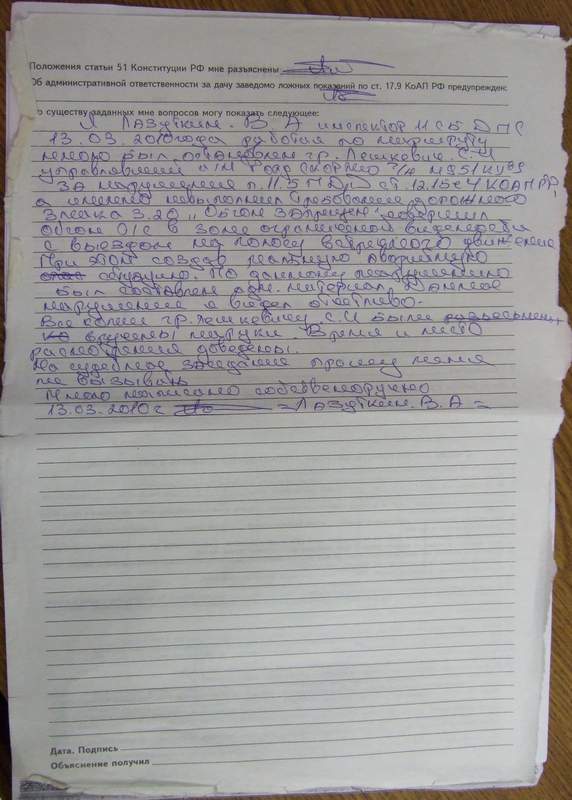 Положения статьи 51 Конституции РФ мне разъяснены
Об административной ответственности за дачу заведомо ложных показаний по ст. 17.9 КоАП РФ предупрежден:
о существу заданных мне вопросов могу показать следующее:
Я Лазуткин. В. А инспектор 11 СБ ДПС
13.03.2010 года работая по маршруту
мною был остановлен гр. С.И
управлявший а/м Форд г/н
за нарушение п. 11.5 ПДД ст. 12.15 ч 4 КОАП РФ,
а именно невыполнил требование дорожного
знака 3.20 „Обгон запрещен" совершил
обгон т/с в зоне ограниченой видемости
с выездом на полосу встречного движение
При этом создав реальную аварийную
обтуацию. По данному нарушению
был составлен адм. материал. Данное
нарушение я видел отчетливо.
Все копии гр. С.И были
вручены на руки. Время и место
расмотрения доведены.
На судебное заседание прошу меня
не вызывать
Мною написано собственоручно
13.03.2010 г Лазуткин. В. А
Дата. Подпись
Объяснение получил